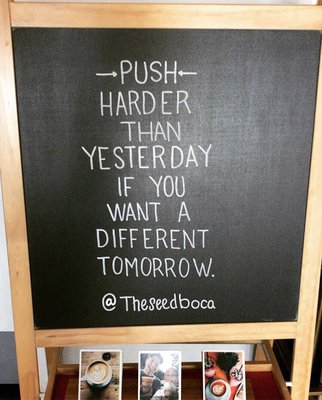 →PUSH←
HARDER
THAN
YESTERDAY
IF YOU
WANT A
DIFFERENT
TOMORROW.
@Theseedboca